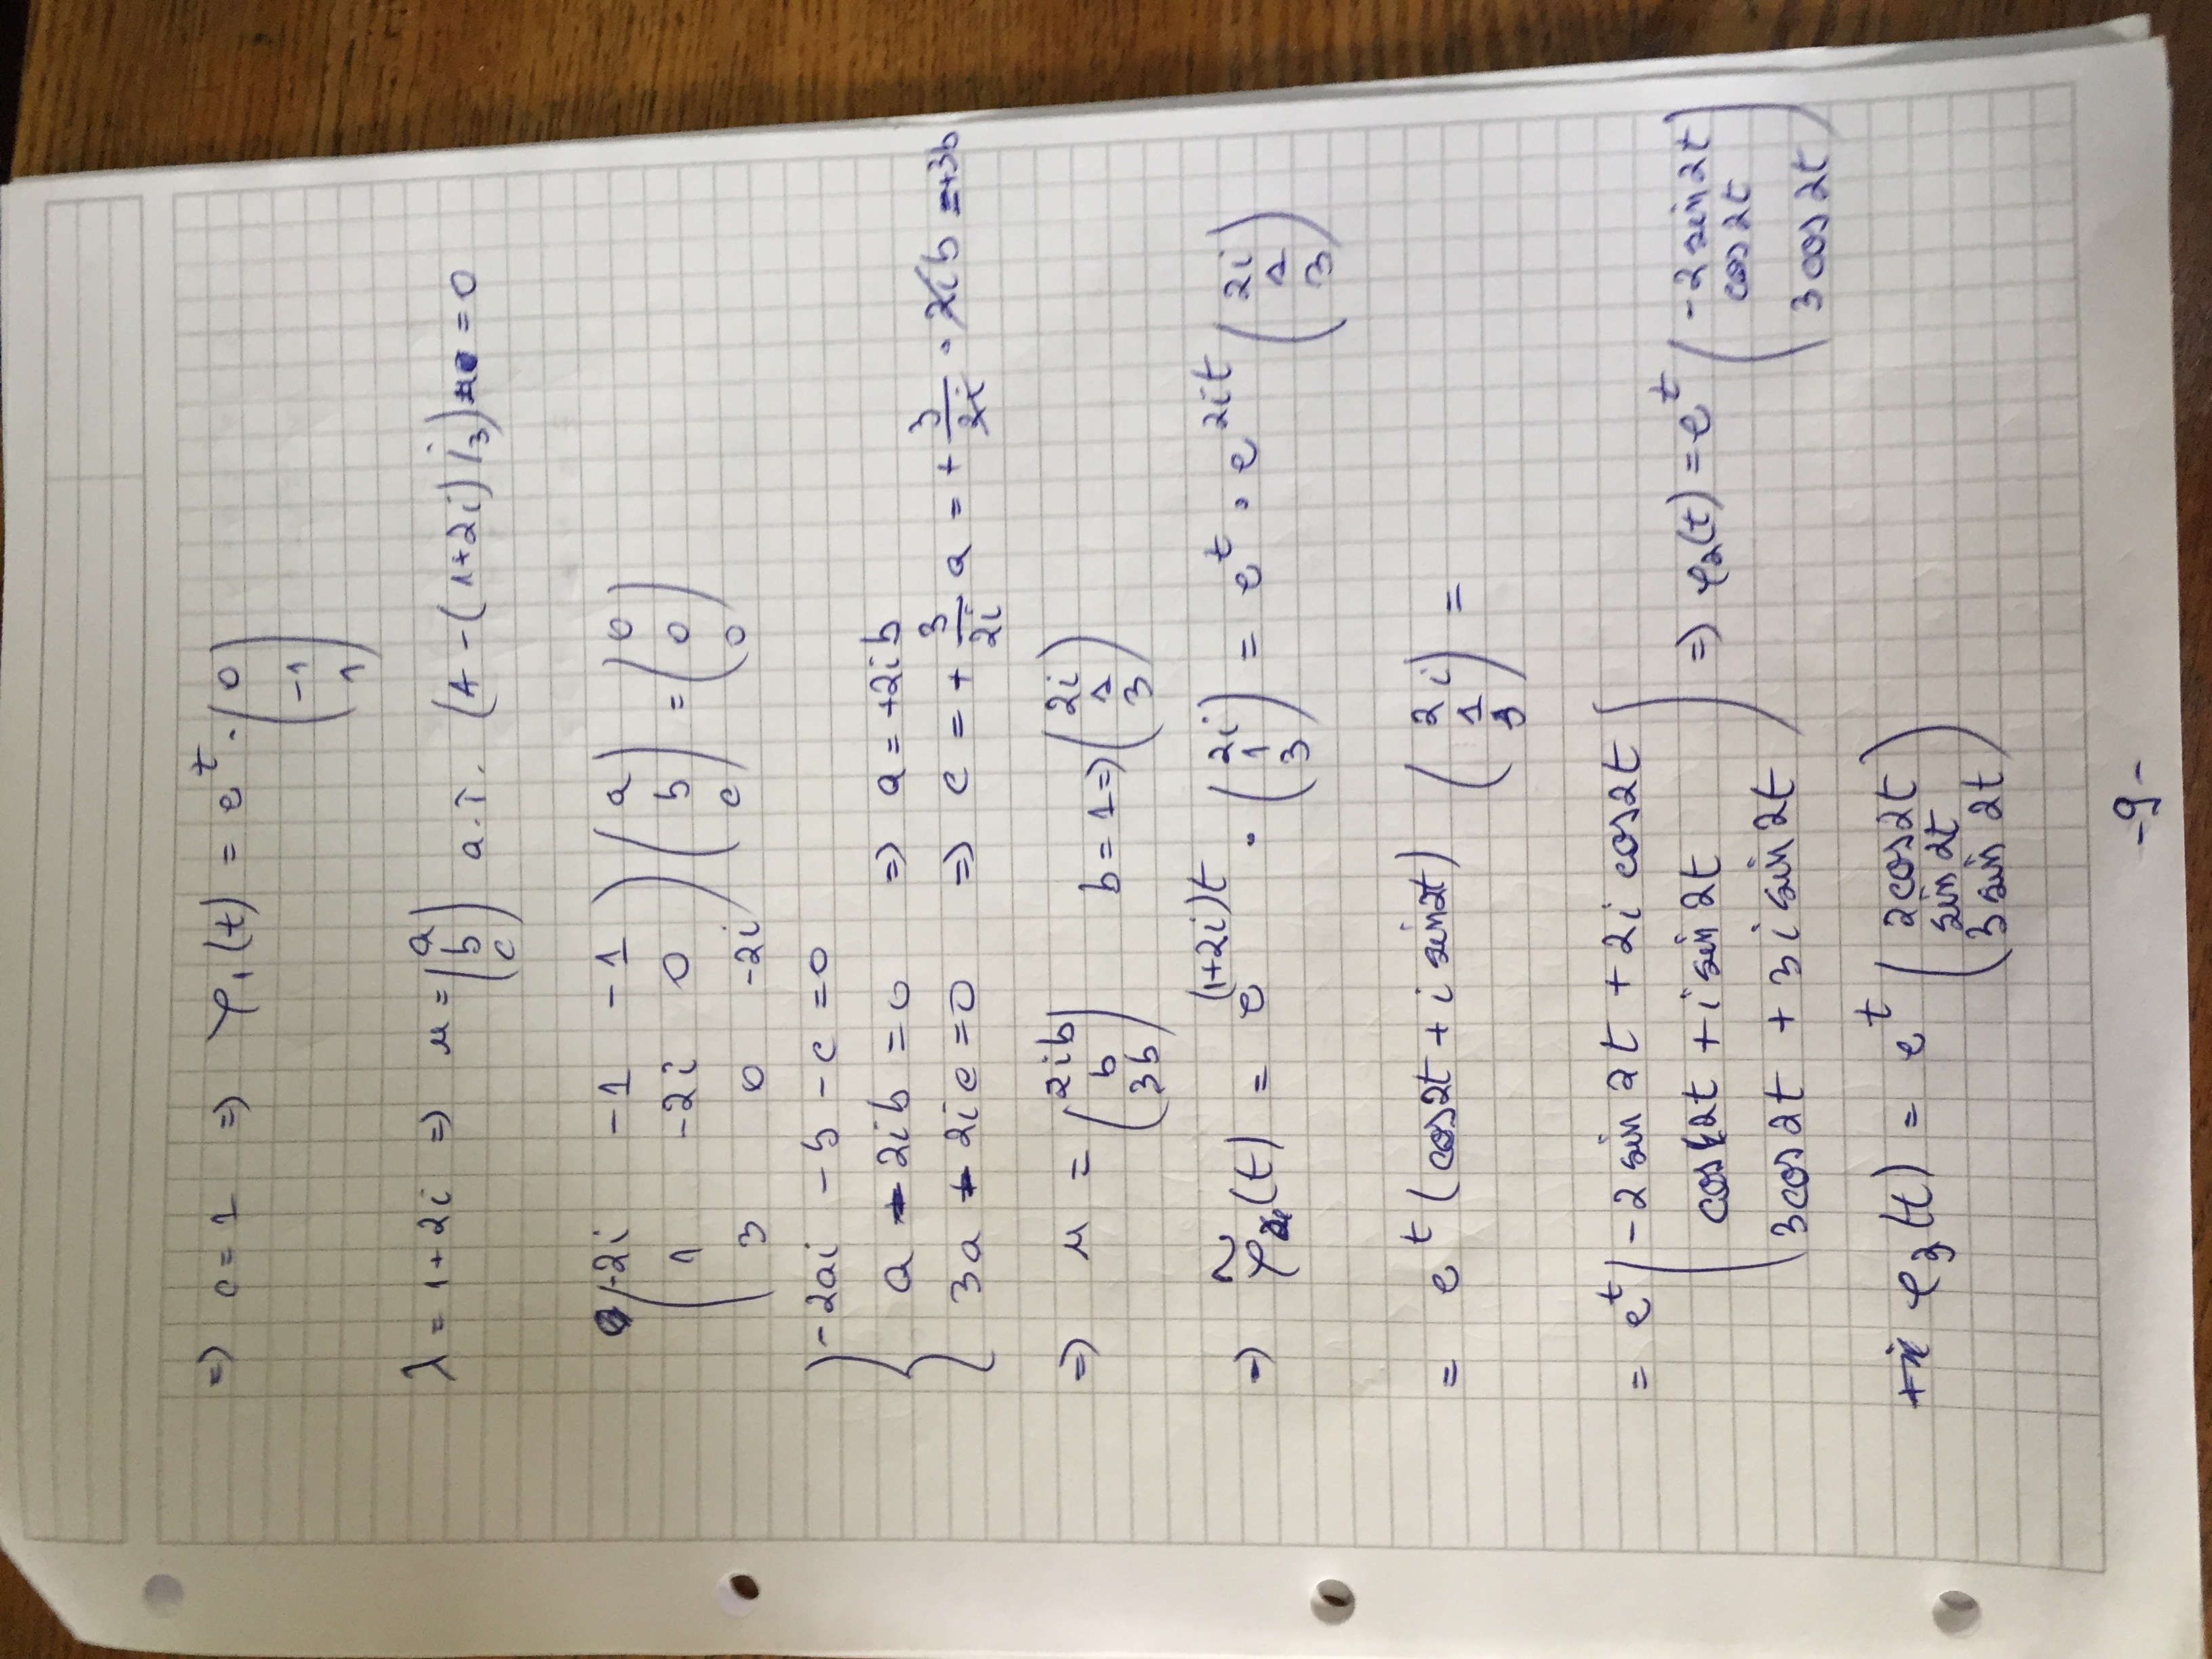 => c = 1 => φ₁(t) = e^t · (0 -1 1)
λ = 1+2i => u = (a b c) a.î. (A - (1+2i) I₃) u = 0
(-2i -1 -1) (a) = (0)
(1 -2i 0) (b) (0)
(3 0 -2i) (c) (0)
{ -2ai - b - c = 0
a - 2ib = 0 => a = +2ib
3a - 2ic = 0 => c = + 3/2i a = + 3/2i · 2ib = +3b
=> u = (2ib b 3b) b = 1 => (2i 1 3)
=> φ̃₂(t) = e^(1+2i)t · (2i 1 3) = e^t · e^2it (2i 1 3)
= e^t (cos2t + i sin2t) (2i 1 3) =
= e^t (-2 sin 2t + 2i cos2t
cos 2t + i sin 2t
3cos 2t + 3 i sin 2t) => φ₂(t) = e^t (-2 sin 2t cos 2t 3 cos 2t)
φ₃(t) = e^t (2cos2t sin 2t 3 sin 2t)
-9-